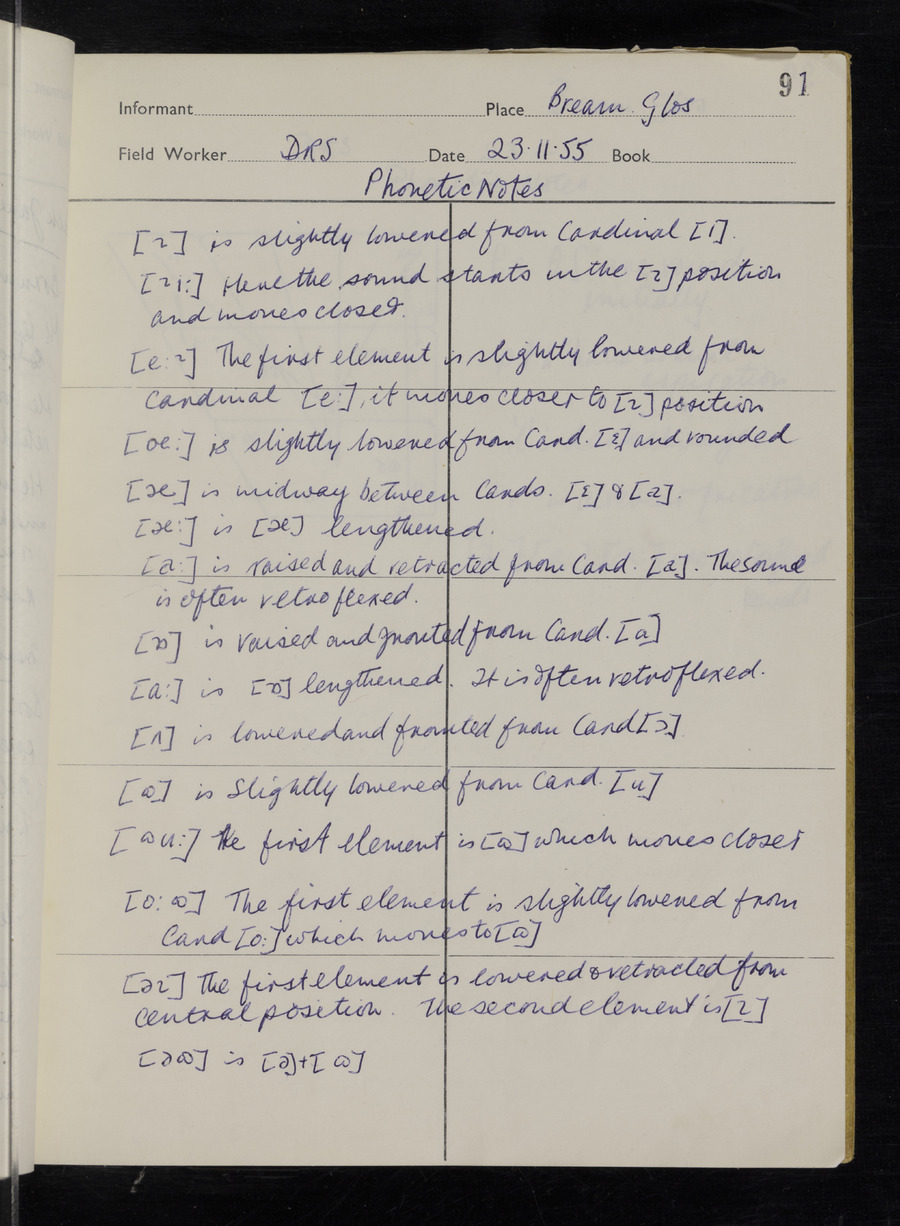 91
Informant Place Bream. Glos
Field Worker DRS Date 23·11·55 Book
Phonetic Notes
[ɿ] is slightly lowered from Cardinal [i].
[ɿi:] Here the sound starts in the [ɿ] position
and moves closer.
[e:ɿ] The first element is slightly lowered from
Cardinal [e:], it moves closer to [ɿ] position
[œ:] is slightly lowered from Card. [ɛ] and rounded
[æ] is midway between Cards. [ɛ] & [a].
[æ:] is [æ] lengthened.
[a:] is raised and retracted from Card. [a]. The sound
is often retroflexed.
[ɒ] is raised and fronted from Card. [ɑ]
[ɑ:] is [ɒ] lengthened. It is often retroflexed.
[ʌ] is lowered and fronted from Card [ɔ]
[ɷ] is Slightly lowered from Card. [u]
[ɷu:] the first element is [ɷ] which moves closer
[o:ɷ] The first element is slightly lowered from
Card [o:] which moves to [ɷ]
[əɿ] The first element is lowered & retracted from
central position. The second element is [ɿ]
[əɷ] is [ə]+[ɷ]